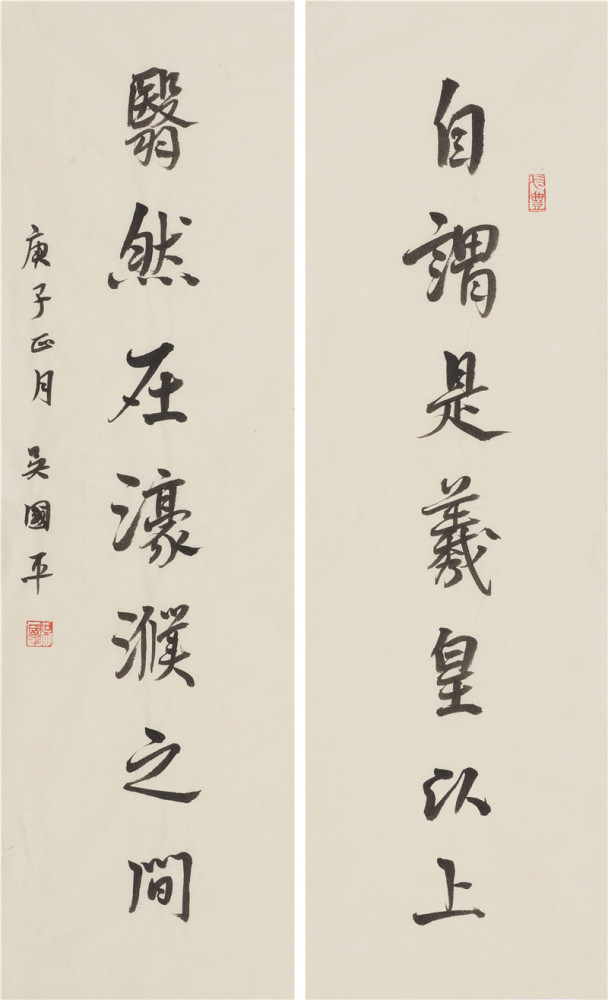 自謂是羲皇以上
翳然在濠濮之間
庚子正月 吴國平